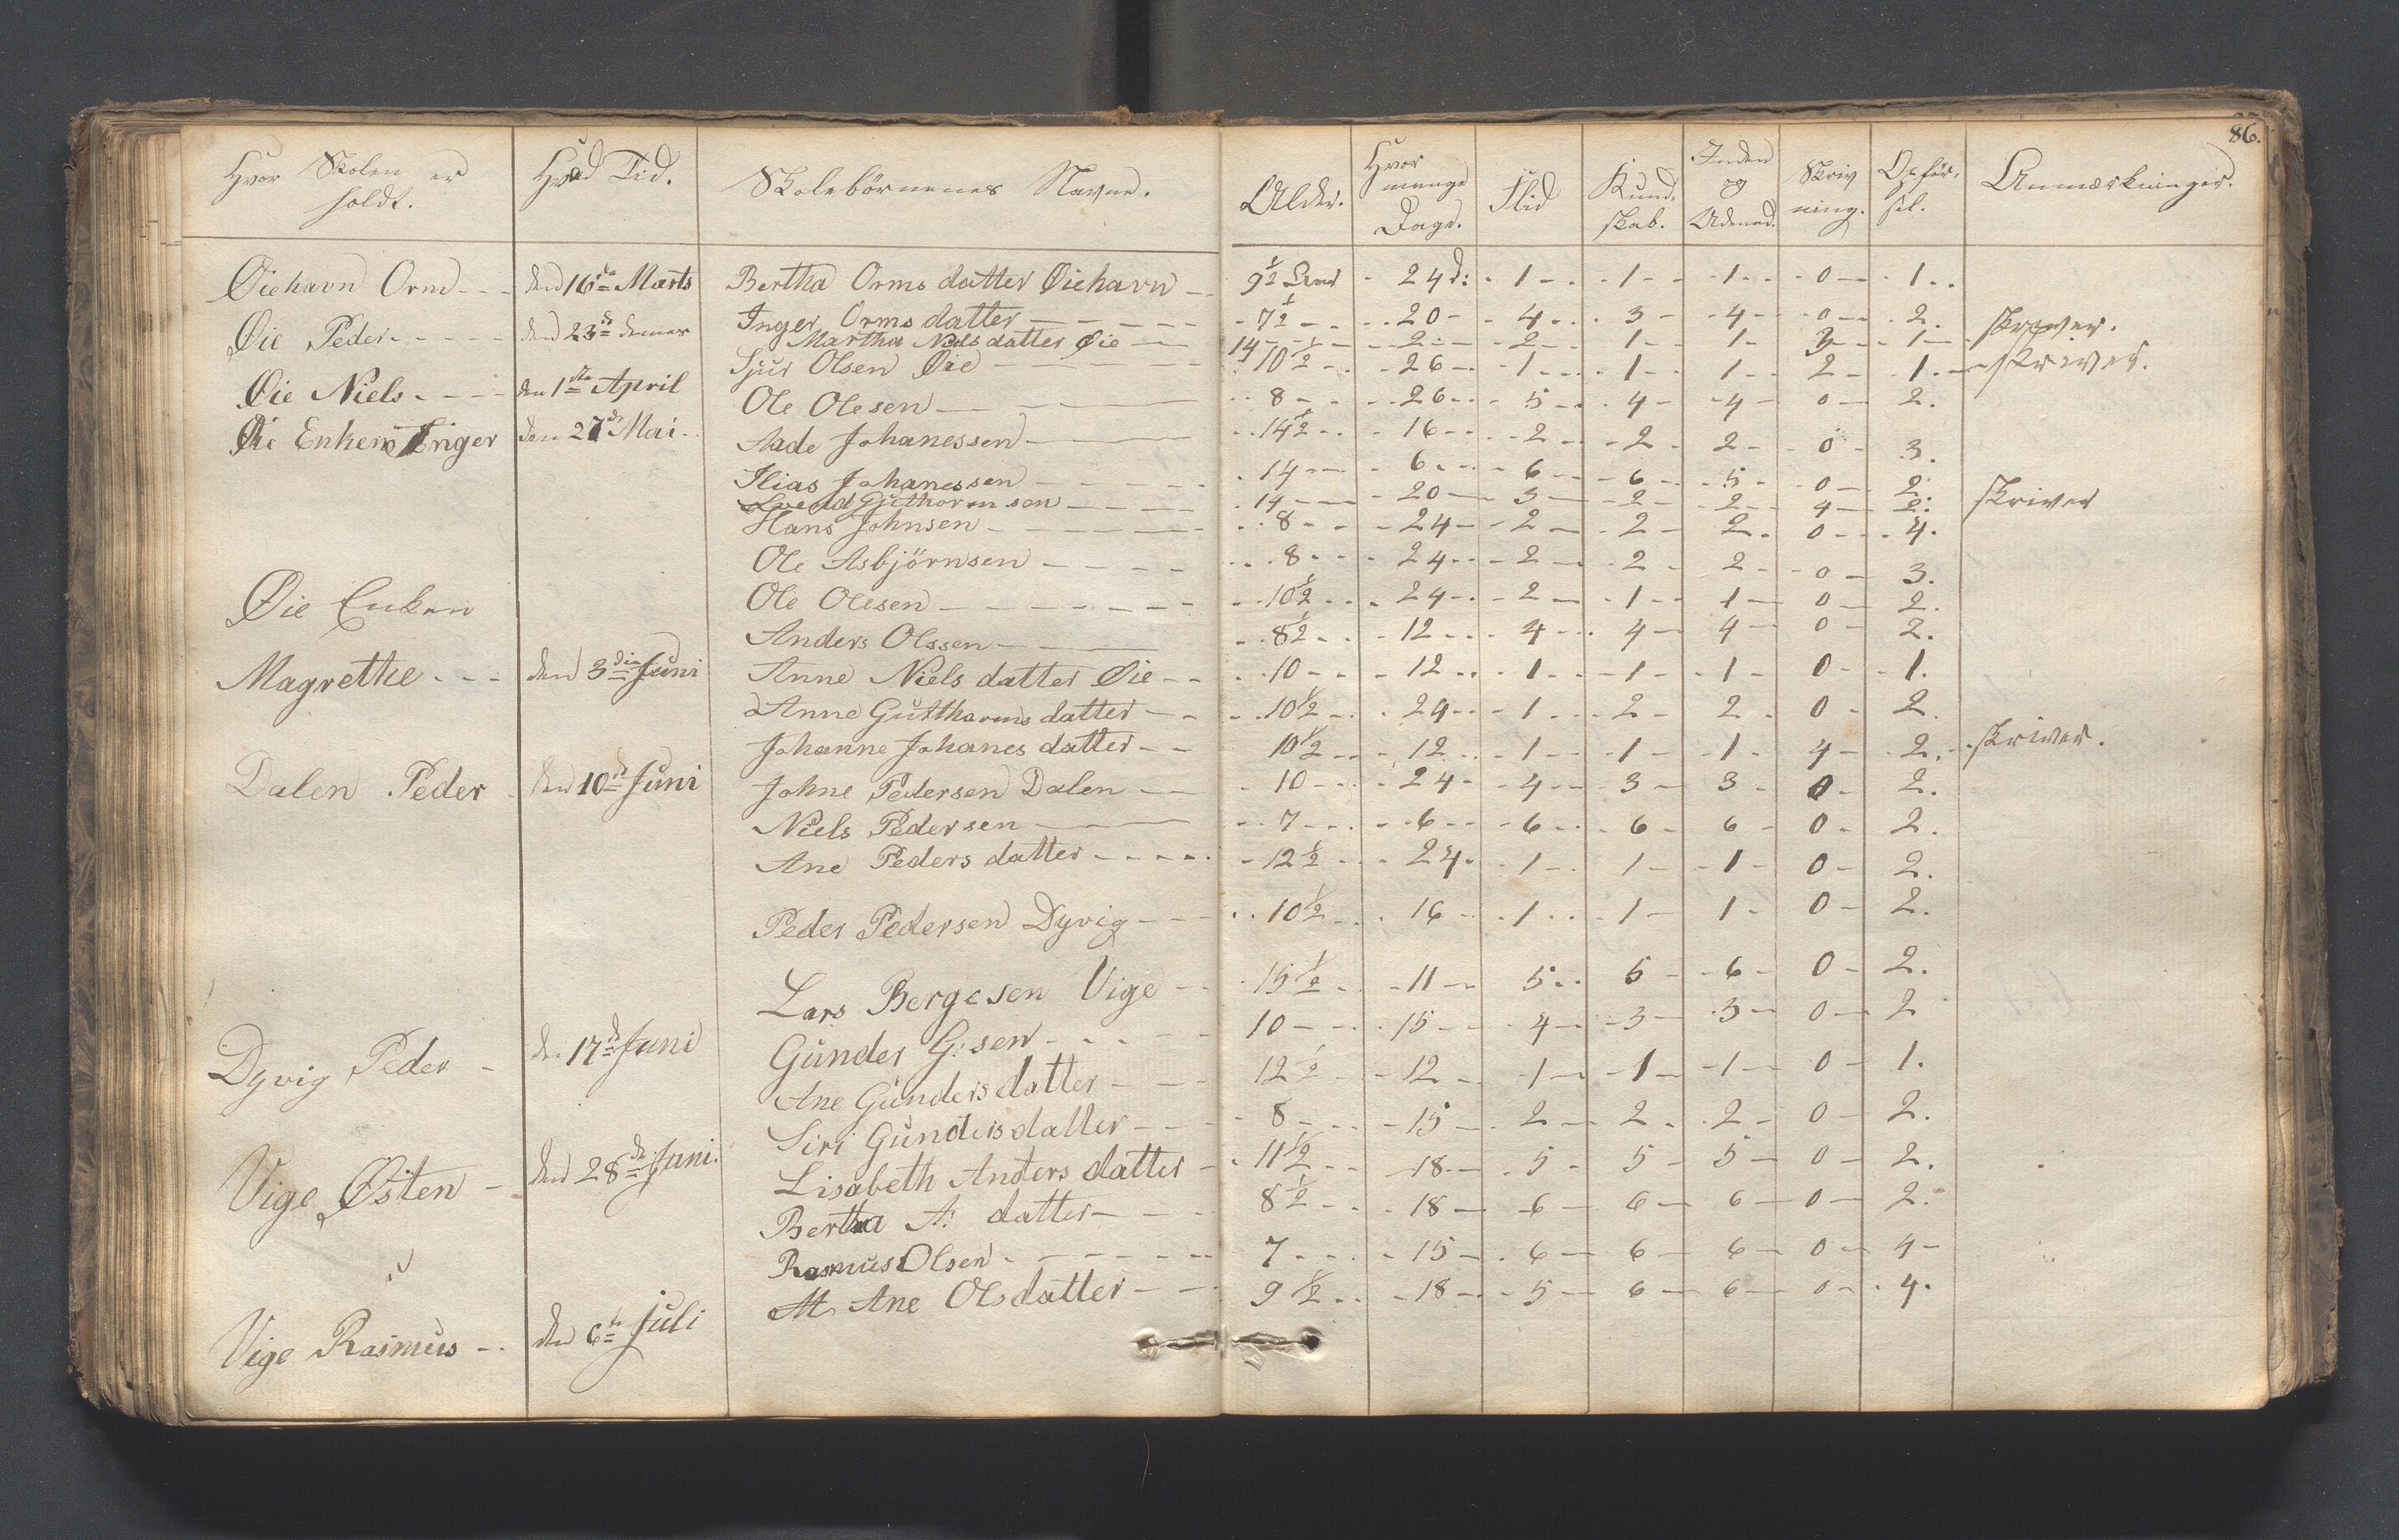 86.
Hvor Skolen er holdt. Hvad Tid. Skolebörnenes Navne. Alder. Hvor mange Dage. Flid Kundskab. Inden og Udenad. Skrivning. Opförsel. Anmærkninger.
Øiehavn Orm - - - den 16de Marts Bertha Orms datter Øiehavn - - 9 1/2 - 24 d: - 1 - - 1 - - 1 - - 0 - - 1 - -
Inger Orms datter - - - - 7 1/2 - - 20 - - 4 - - 3 - - 4 - - 0 - - 2.
Øie Peder - - - - den 23de Martha Niels datter Øie - - 14 - - 2 - - 2 - - 1 - - 1 - 3 - - 1 - skriver.
Sjur Olsen Øie - - - - 10 1/2 - - 26 - - 1 - - 1 - - 1 - - 2 - 1 - - skriver.
Øie Niels - - - den 1ste April Ole Olesen - - - 8 - - 26 - - 5 - - 4 - - 4 - 0 - 2.
Øie Enken Inger den 27de Mai Aade Johanessen - - - 14 1/2 - - 16 - - 2 - - 2 - 2 - - 0 - 3.
Ilias Johanessen - - - - 14 - - 6 - - 6 - - 6 - 5 - - 0 - 2.
Guthormsen - - - 14 - - 20 - - 3 - - 2 - - 2 - - 4 - 2. skriver
Hans Johnsen - - - - 8 - - 24 - - 2 - - 2 - 2 - 0 - - 4.
Ole Asbjörnsen - - - - 8 - - 24 - - 2 - - 2 - 2 - - 0 - 3.
Øie Enken Ole Olesen - - - - 10 1/2 - - 24 - - 2 - - 1 - - 1 - 0 - 2.
Anders Olssen - - - 8 1/2 - - 12 - - 4 - - 4 - 4 - 0 - 2.
Magrethe - - - den 3die Juni Anne Niels datter Øie - - 10 - - 12 - - 1 - - 1 - - 1 - 0 - 1.
Anne Guttharms datter - - 10 1/2 - - 24 - - 1 - - 2 - 2 - 0 - 2.
Johanne Johanes datter - - 10 1/2 - - 12 - - 1 - - 1 - - 1 - 4 - 2. - skriver.
Dalen Peder - den 10de Juni Johne Pedersen Dalen - - 10 - - 24 - - 4 - - 3 - 3 - 0 - 2.
Niels Pedersen - - - 7 - - 6 - - 6 - - 6 - 6 - 0 - 2.
Ane Peders datter - - - - 12 1/2 - - 24 - 1 - - 1 - - 1 - 0 - 2.
Peder Pedersen Dyvig - - - 10 1/2 - - 16 - - 1 - - 1 - 1 - 0 - 2.
Lars Bergesen Vige - - 15 1/2 - - 11 - - 5 - - 5 - - 6 - 0 - 2.
Dyvig Peder - den 17de Juni Gunder G: sen - - - 10 - - 15 - - 4 - - 3 - 3 - 0 - 2
Ane Gunders datter - - - 12 1/2 - - 12 - - 1 - - 1 - - 1 - 0 - 1.
Siri Gunders datter - - - 8 - - 15 - - 2 - 2 - 2 - 0 - 2.
Vige Østen - den 28de Juni. Lisabeth Anders datter - 11 1/2 - - 18 - - 5 - 5 - 5 - 0 - 2.
Bertha A: datter - - - 8 1/2 - - 18 - - 6 - 6 - 6 - 0 - 2.
Rasmus Olsen - - - - - 7 - - 15 - - 6 - 6 - 6 - 0 - 4 -
Vige Rasmus - - den 6te Juli Ane Ols datter - - 9 1/2 - - 18 - - 5 - 6 - 6 - 0 - 4.